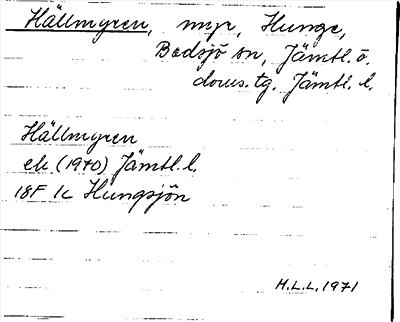 Hällmyren, myr, Hunge,
Bodsjö sn, Jämtl. ö.
doms.tg. Jämtl. l.
Hällmyren
ek (1940) Jämtl. l.
18F 1c Hungsjön
H.L.L. 1971